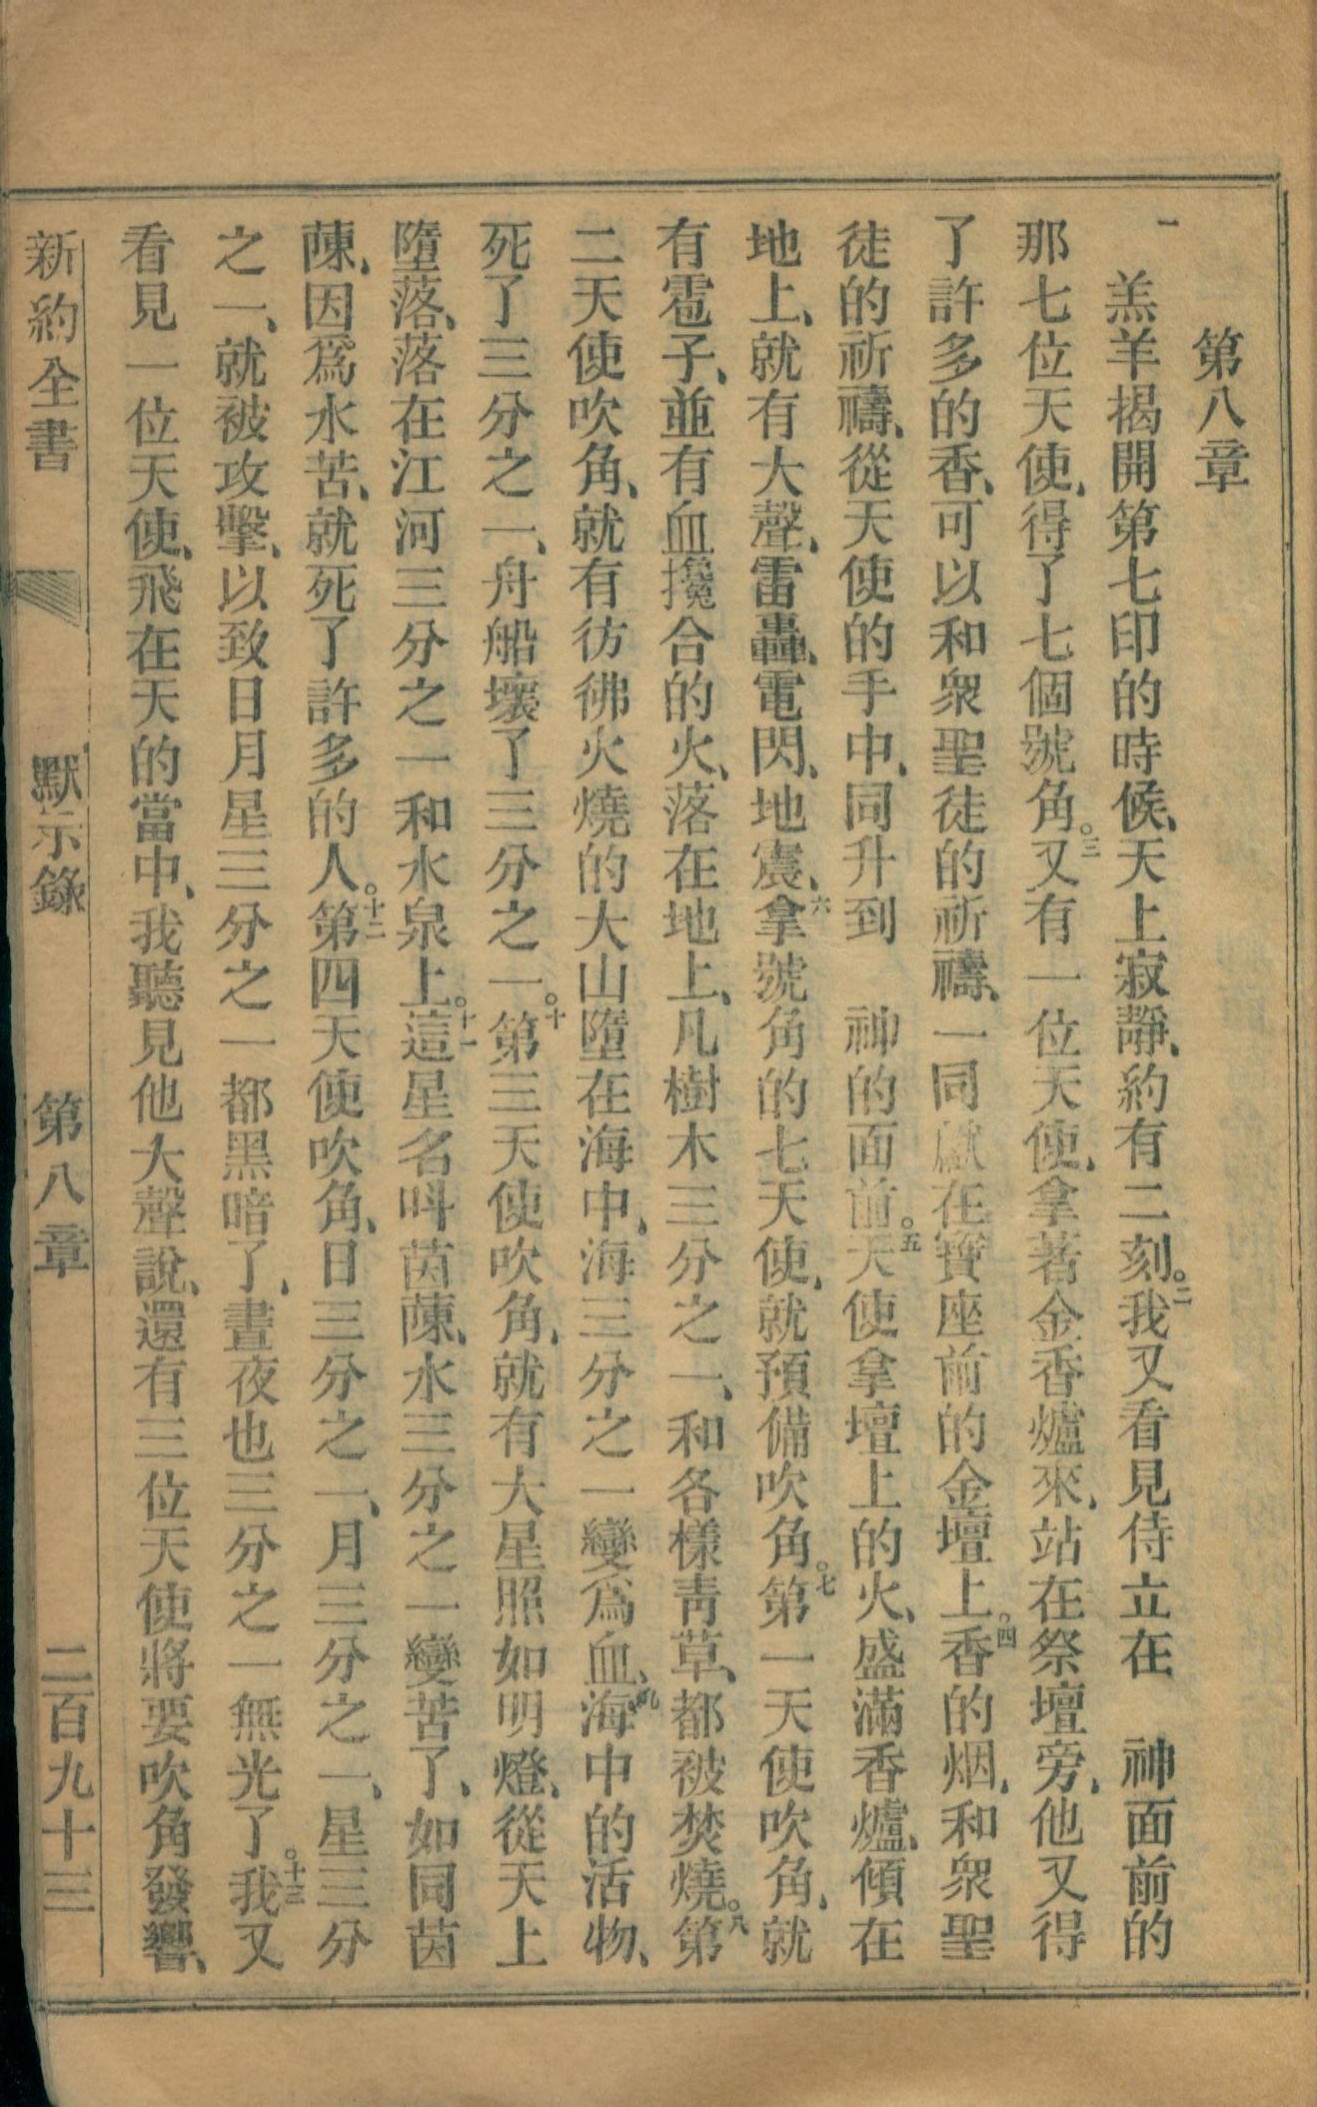 第八章
一羔羊揭開第七印的時候、天上寂靜、約有二刻。二我又看見侍立在　神面前的
那七位天使、得了七個號角。三又有一位天使、拿著金香爐來、站在祭壇旁、他又得
了許多的香、可以和衆聖徒的祈禱、一同獻在寶座前的金壇上。四香的烟、和衆聖
徒的祈禱、從天使的手中、同升到　神的面前。五天使拿壇上的火、盛滿香爐、傾在
地上、就有大聲、雷轟、電閃、地震、六拿號角的七天使、就預備吹角。七第一天使吹角、就
有雹子、並有血攙合的火、落在地上、凡樹木三分之一、和各樣靑草、都被焚燒。八第
二天使吹角、就有彷彿火燒的大山墮在海中、海三分之一變爲血、九海中的活物、
死了三分之一、舟船壞了三分之一。十第三天使吹角、就有大星照如明燈、從天上
墮落、落在江河三分之一和水泉上。十一這星名呌茵蔯、水三分之一變苦了、如同茵
蔯、因爲水苦、就死了許多的人。十二第四天使吹角、日三分之一、月三分之一、星三分
之一、就被攻擊、以致日月星三分之一都黑暗了、晝夜也三分之一無光了。十三我又
看見一位天使、飛在天的當中、我聽見他大聲說、還有三位天使將要吹角發響、
新約全書　默示錄　第八章　二百九十三